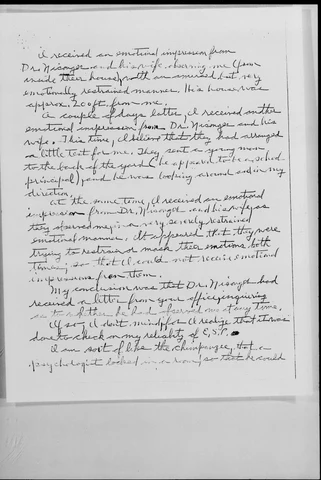 I received an emotional impression from
Dr. Nisonger and his wife observing me from
inside their house, with an amused but very
emotionally restrained manner. His house was
approx. 200 ft from me.
A couple of days later, I received another
emotional impression from Dr. Nisonger and his
wife. This time, I believe that they had arranged
a little test for me. They sent a young man
to the back of the yard (he appeared to be a school
principal), and he was looking around and in my
direction.
At the same time, I received an emotional
impression from Dr. Nisonger and his wife as
they observed me, in a very severely restrained
emotional manner. It appeared that they were
trying to restrain or mask their emotions, both
so that I could not receive emotional
impressions from them.
My conclusion was that Dr. Nisonger had
received a letter from your office inquiring
as to whether he had observed me at any time.
If so, I don't mind, for I realize that it was
done to check on my reliability of E.S.P.
I am sort of like the chimpanzee, that a
psychologist locked in a room, so that he could